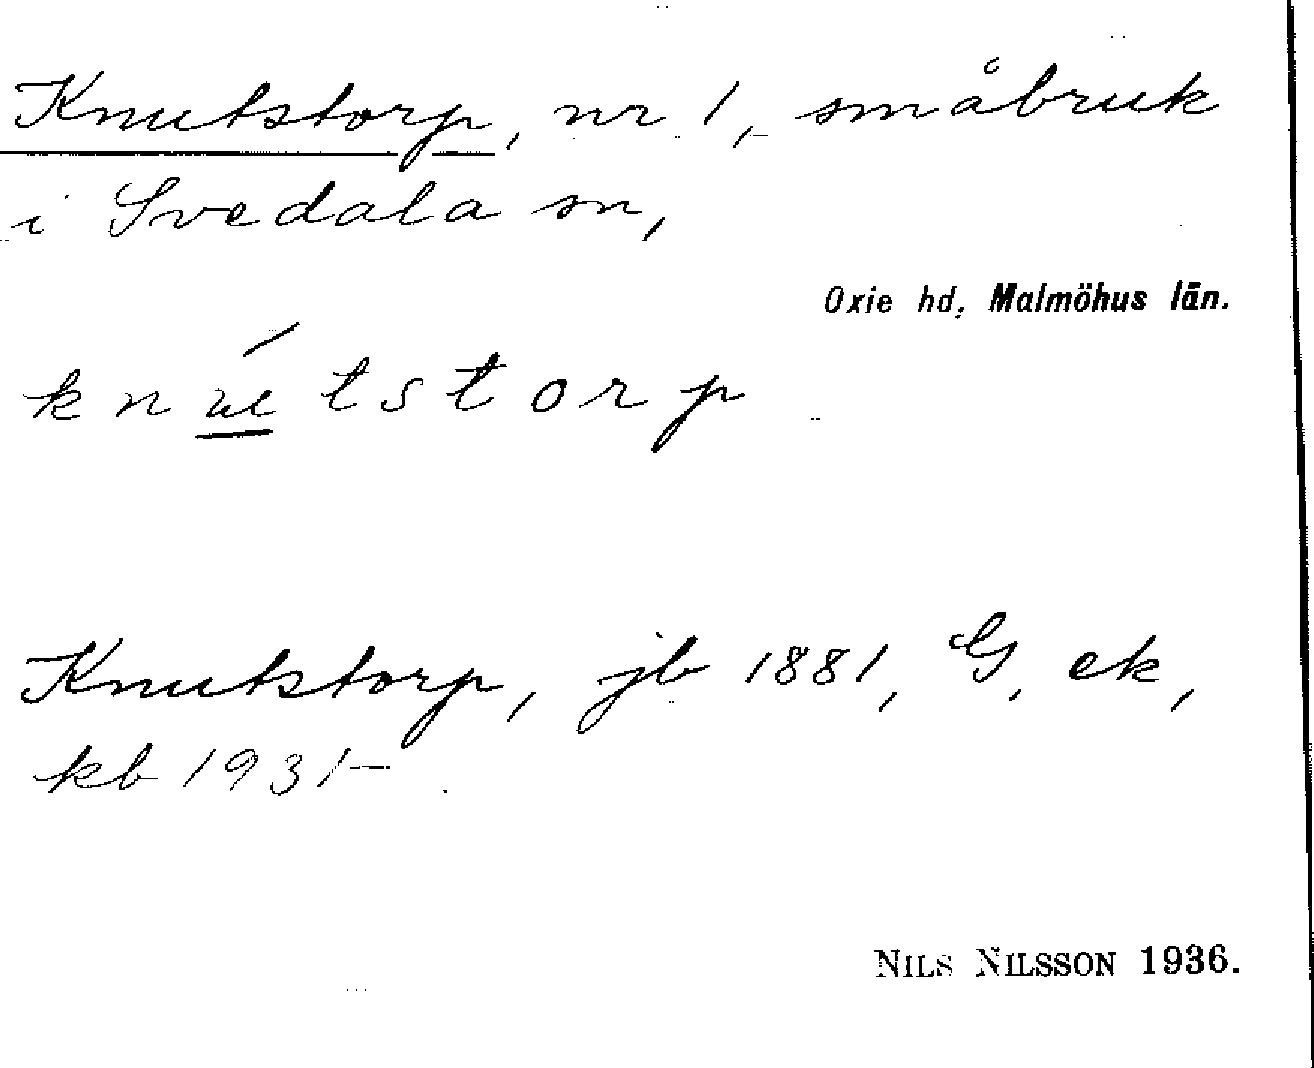 Knutstorp, nr 1, småbruk
i Svedala sn,
Oxie hd, Malmöhus län.
knútstorp
Knutstorp, jb 1881, G. ek,
kb 1931–
NILS NILSSON 1936.